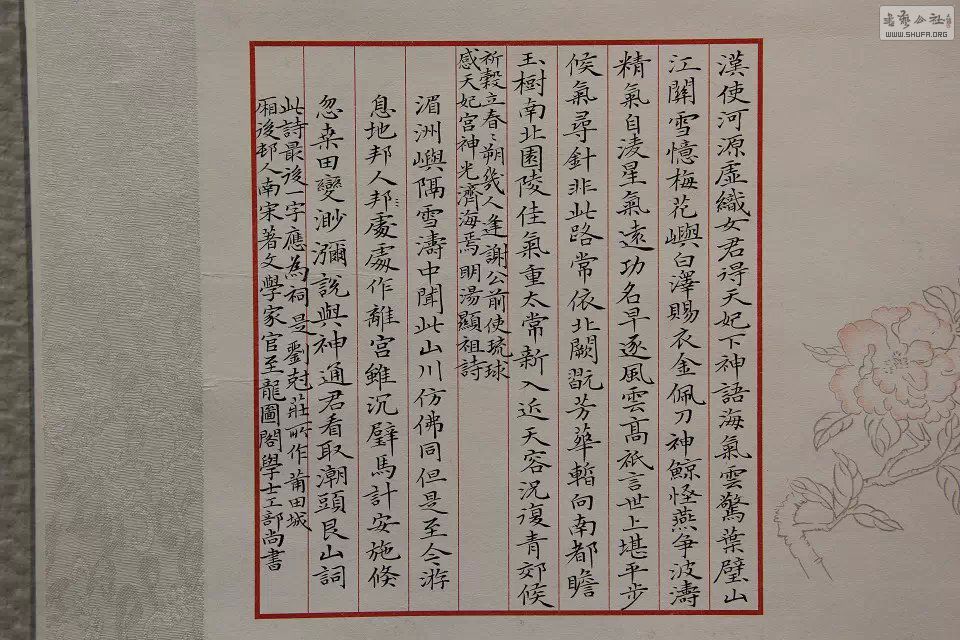 漢使河源虛織女君得天妃下神語海氣雲驚葉璧山
江關雪憶梅花嶼白澤賜衣金佩刀神鯨怪燕爭波濤
精氣自淩星氣遠功名早逐風雲高祇言世上堪平步
候氣尋針非此路常依北闕翫芳華暫向南都瞻
玉樹南北園陵佳氣重太常新入近天容況復青郊候
祈穀立春春朔幾人逢謝公前使琉球
感天妃宮神光濟海焉明湯顯祖詩
湄洲嶼隔雪濤中聞此山川仿佛同但是至今游
息地邦人邦處處作離宮雖沉璧馬計安施倏
忽桑田變渺瀰說與神通君看取潮頭艮山詞
此詩最後一字應為祠是劉尅莊所作莆田城
廂後邨人南宋著文學家官至龍圖閣學士工部尚書
書藝公社
WWW.SHUFA.ORG